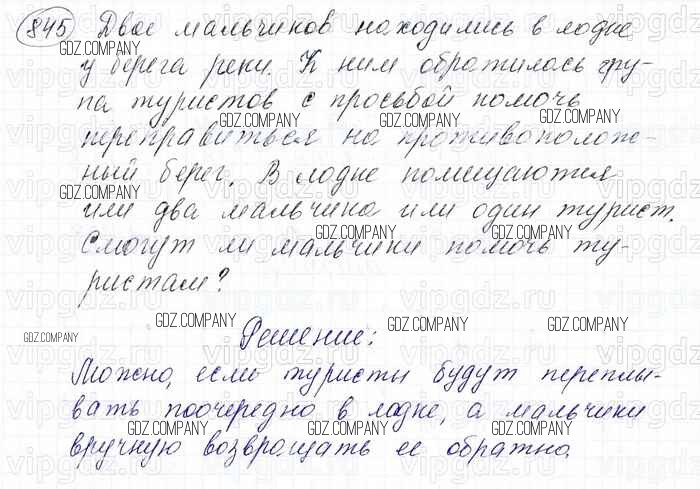 845 Двое мальчиков находились в лодке
у берега реки. К ним обратилась гру-
па туристов с просьбой помочь
переправиться на противополож-
ный берег. В лодке помещаются
или два мальчика или один турист.
Смогут ли мальчики помочь ту-
ристам?
Решение:
Можно, если туристы будут переплы-
вать поочередно в лодке, а мальчики
вручную возвращать ее обратно.
GDZ.COMPANY
vipgdz.ru